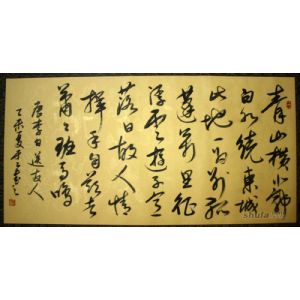 青山横北郭
白水绕东城
此地一为别孤
蓬万里征
浮云游子意
落日故人情
挥手自兹去
萧々班马鸣
唐李白送友人
shufa